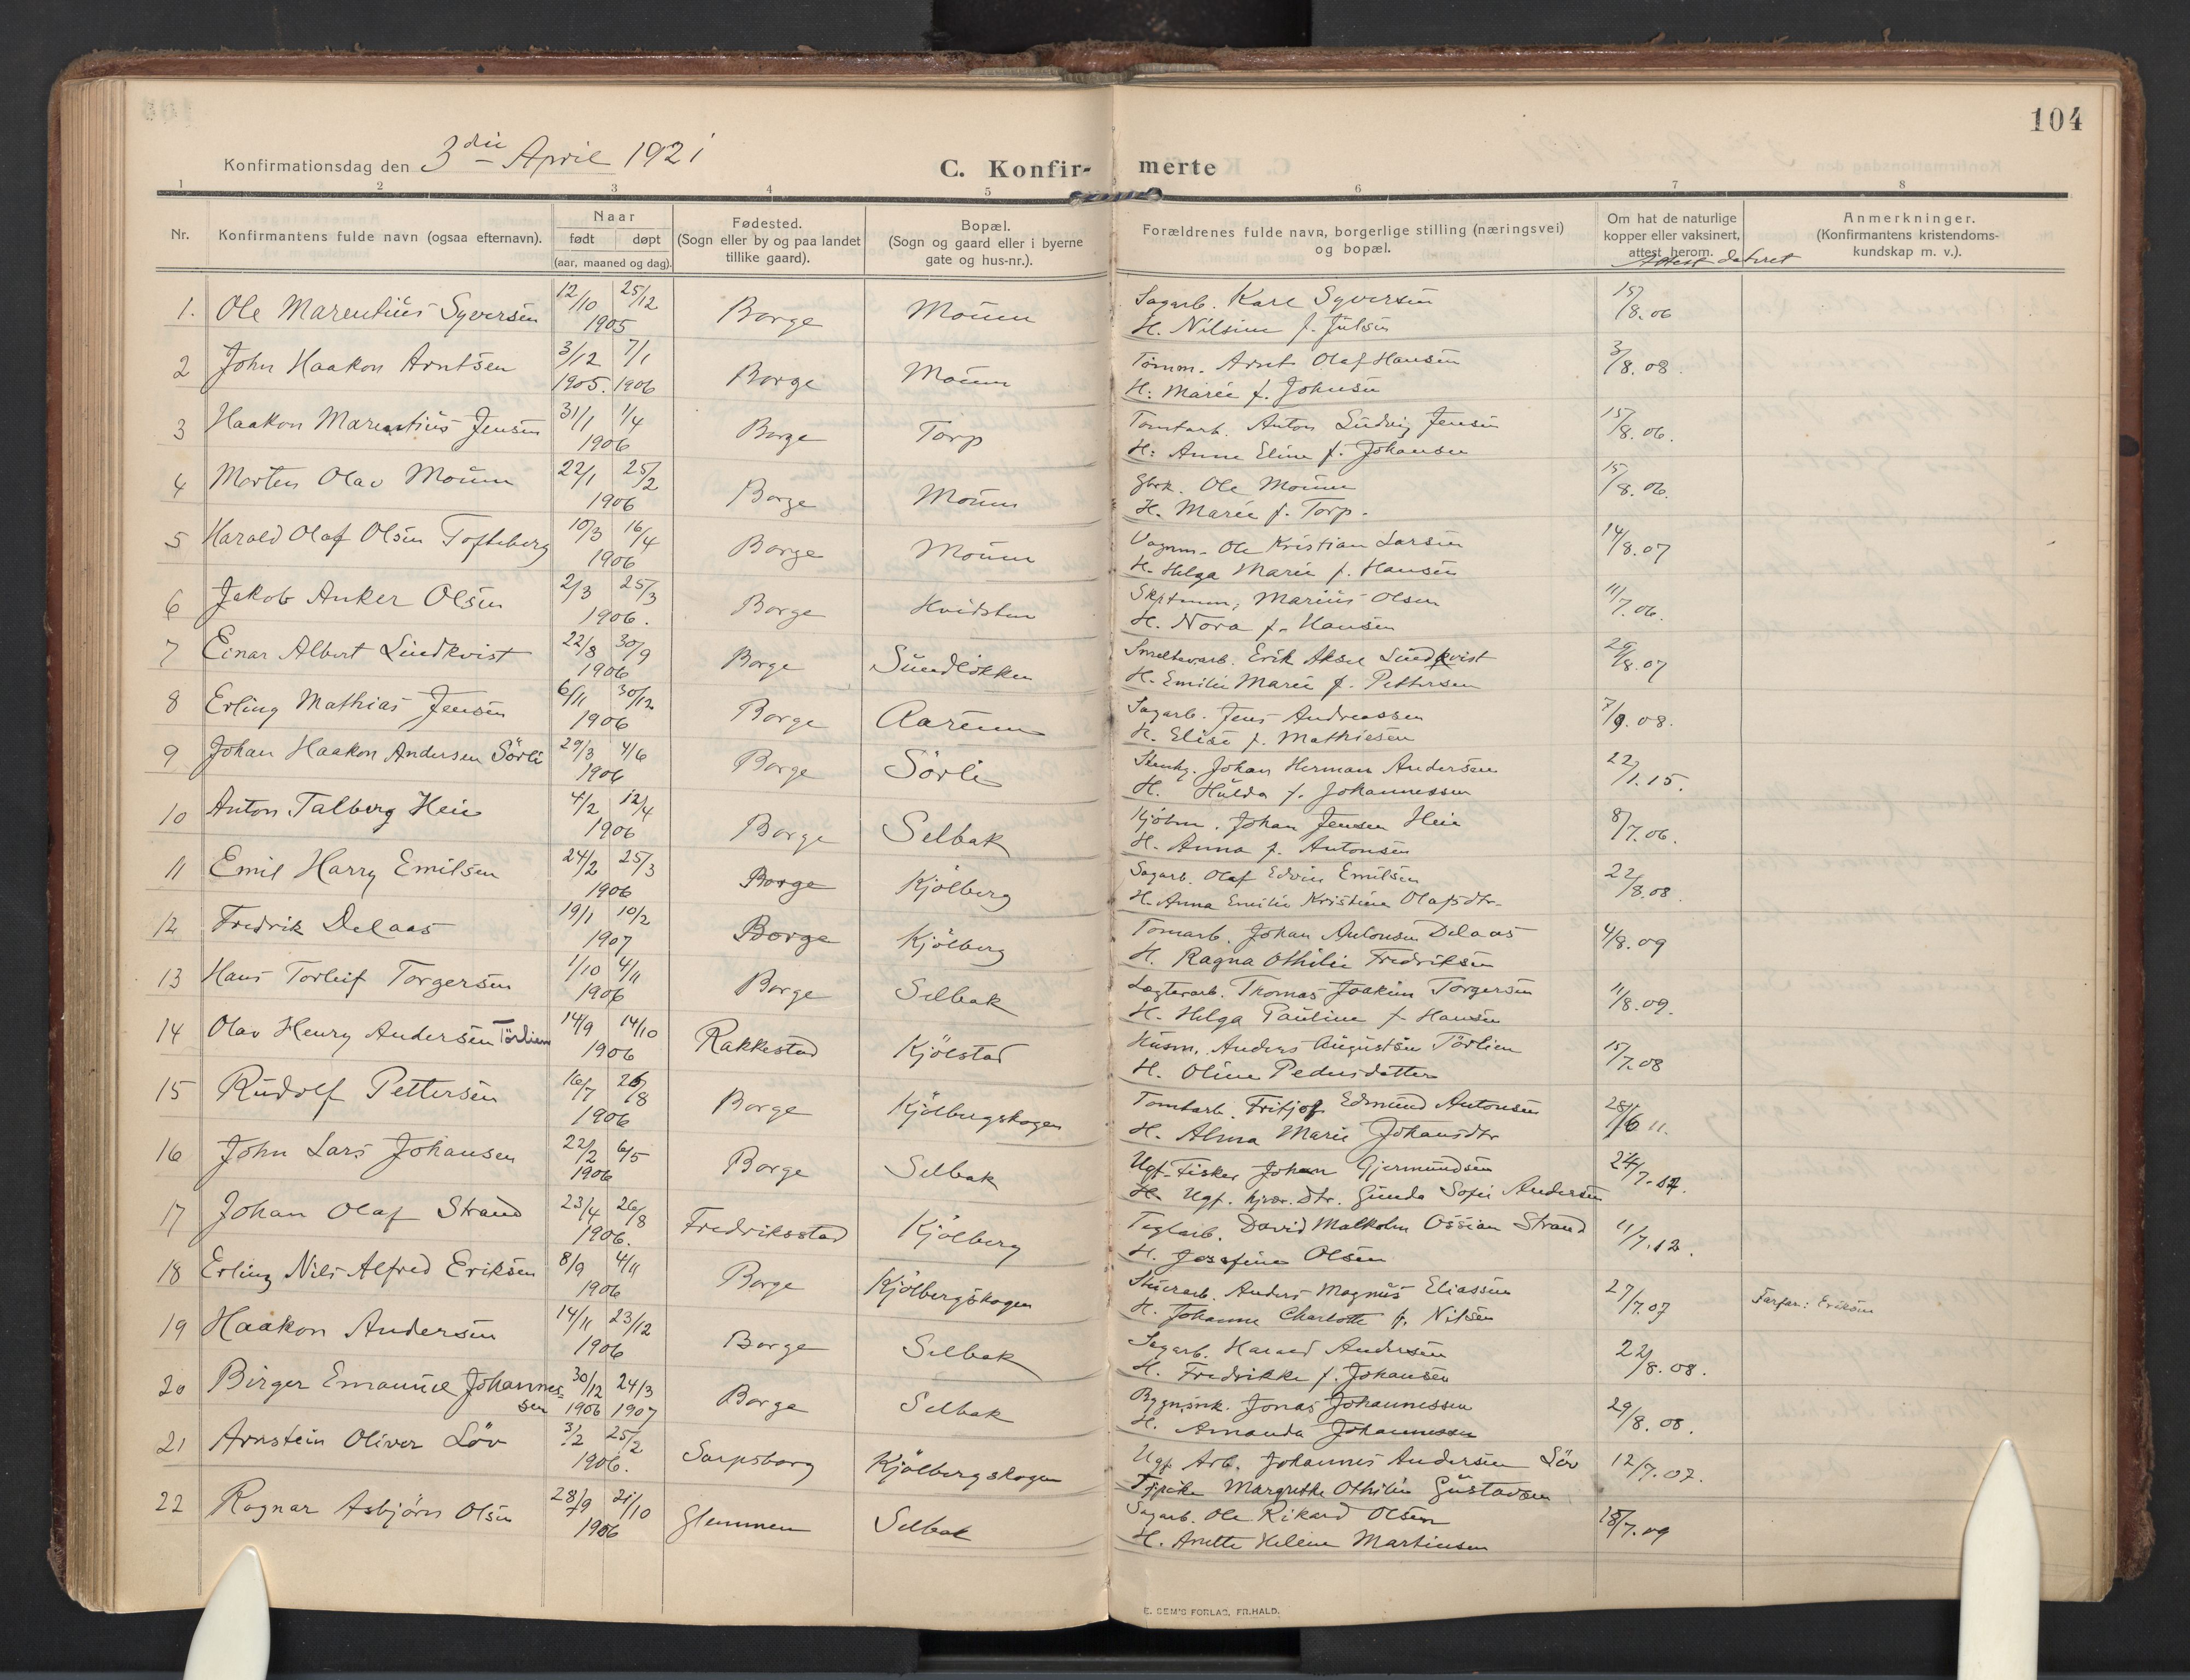 104
Konfirmationsdag den 3die April 1921
C. Konfir- merte
1 2 3 4 5 6 7 8
Nr.
Konfirmantens fulde navn (ogsaa efternavn).
Naar
født døpt
(aar, maaned og dag).
Fødested.
(Sogn eller by og paa landet
tillike gaard).
Bopæl.
(Sogn og gaard eller i byerne
gate og hus-nr.).
Forældrenes fulde navn, borgerlige stilling (næringsvei)
og bopæl.
Om hat de naturlige
kopper eller vaksinert,
attest herom.
Attest dateret
Anmerkninger.
(Konfirmantens kristendoms-
kundskap m. v.).
1. Ole Marentius Syversen 12/10 25/12 1905 Borge Moum Sagarb. Karl Syversen 15/8.06
H. Nilsine f. Julsen
2 John Haakon Arntsen 3/12 1905. 7/1 1906 Borge Moum Tømm. Arnt Olaf Hansen 3/8.08.
H: Marie f. Johnsen
3 Haakon Marentius Jensen 31/1 1/4 1906 Borge Torp Tomtarb. Anton Ludvig Jensen 15/8.06.
H: Anne Eline f. Johansen
4 Morten Olav Moum 22/1 25/2 1906 Borge Moum Gbrk. Ole Moum 15/8.06.
H. Marie f. Torp.
5 Harald Olaf Olsen Tofteberg 10/3 16/4 1906 Borge Moum Vognm. Ole Kristian Larsen 14/8.07
H. Helga Marie f. Hansen
6 Jakob Anker Olsen 2/3 25/3 1906. Borge Hvidsten Marius Olsen 11/7.06.
H. Nora f. Hansen
7 Einar Albert Lindkvist 22/8 30/9 1906 Borge Sundløkken Smelteverb. Erik Aksel Lindkvist 29/8.07
H. Emilie Marie f. Pettersen
8 Erling Mathias Jensen 6/11 30/12 1906 Borge Aarum Sagarb. Jens Andreassen 7/9.08.
H. Elise f. Mathiesen
9 Johan Haakon Andersen Sörli 29/3 4/6 1906 Borge Sörli Stenhg. Johan Herman Andersen 22/1.15.
H. Hulda f. Johannessen
10 Anton Talberg Heie 4/2 12/4 1906 Borge Selbak Kjöbm. Johan Jensen Heie 8/7.06.
H. Anna f. Antonsen
11 Emil Harry Emilsen 24/2 25/3 1906 Borge Kjölberg Sagarb. Olaf Edvin Emilsen 22/8.08.
H. Anna Emilie Kristine Olafsdtr.
12 Fredrik Delaas 19/1 10/2 1907 Borge Kjölberg Tomarb. Johan Antonsen Delaas 4/8.09
H. Ragna Othilie Fredriksen
13 Hans Torleif Torgersen 1/10 4/11 1906 Borge Selbak Lægterarb. Thomas Joakim Torgersen 11/8.09.
H. Helga Pauline f. Hansen
14 Olav Henry Andersen Törlien 14/9 14/10 1906 Rakkestad Kjölstad Husm. Anders Augustsen Törlien 15/7.08
H. Oline Pedersdatter
15 Rudolf Pettersen 16/7 26/8 1906 Borge Kjölbergskogen Tomtarb. Fritjof Edmund Antonsen 28/6 11.
H. Alma Marie Johansdtr
16 John Lars Johansen 22/2 6/5 1906 Borge Selbak Ugf. Fisker Johan Gjermundsen 24/7.
Ugf. Gunda Sofie Andersen
17 Johan Olaf Strand 23/4 26/8 1906. Fredriksstad Kjölberg Teglarb. David Malkolm Ossian Strand 11/7.12.
H. Josefine Olsen
18 Erling Nils Alfred Eriksen 8/9 4/11 1906 Borge Kjölbergskogen Anders Magnus Eliassen 27/7.07 Farfar: Eriksen
H. Johanne Charlotte f. Nilsen
19 Haakon Andersen 14/11 23/12 1906 Borge Selbak Sagarb. Harald Andersen 22/8.08.
H. Fredrikke f. Johansen
20 Birger Emanuel Johannes- 30/12 1906 24/3 1907 Borge Selbak Bygnsnk. Jonas Johannessen 29/8.08.
sen H. Amanda Johannessen
21 Arnstein Oliver Löv 3/2 25/2 1906. Sarpsborg Kjölbergskogen Ugf. Arb. Johannes Andersen Löv 12/7.07.
Margrethe Othilie Gustavsen
22 Ragnar Asbjörn Olsen 28/9 21/10 1906 Glemmen Selbak Sagarb. Ole Rikard Olsen 18/7.09
H. Anette Helene Martinsen
E. SEM'S FORLAG, FR.HALD.